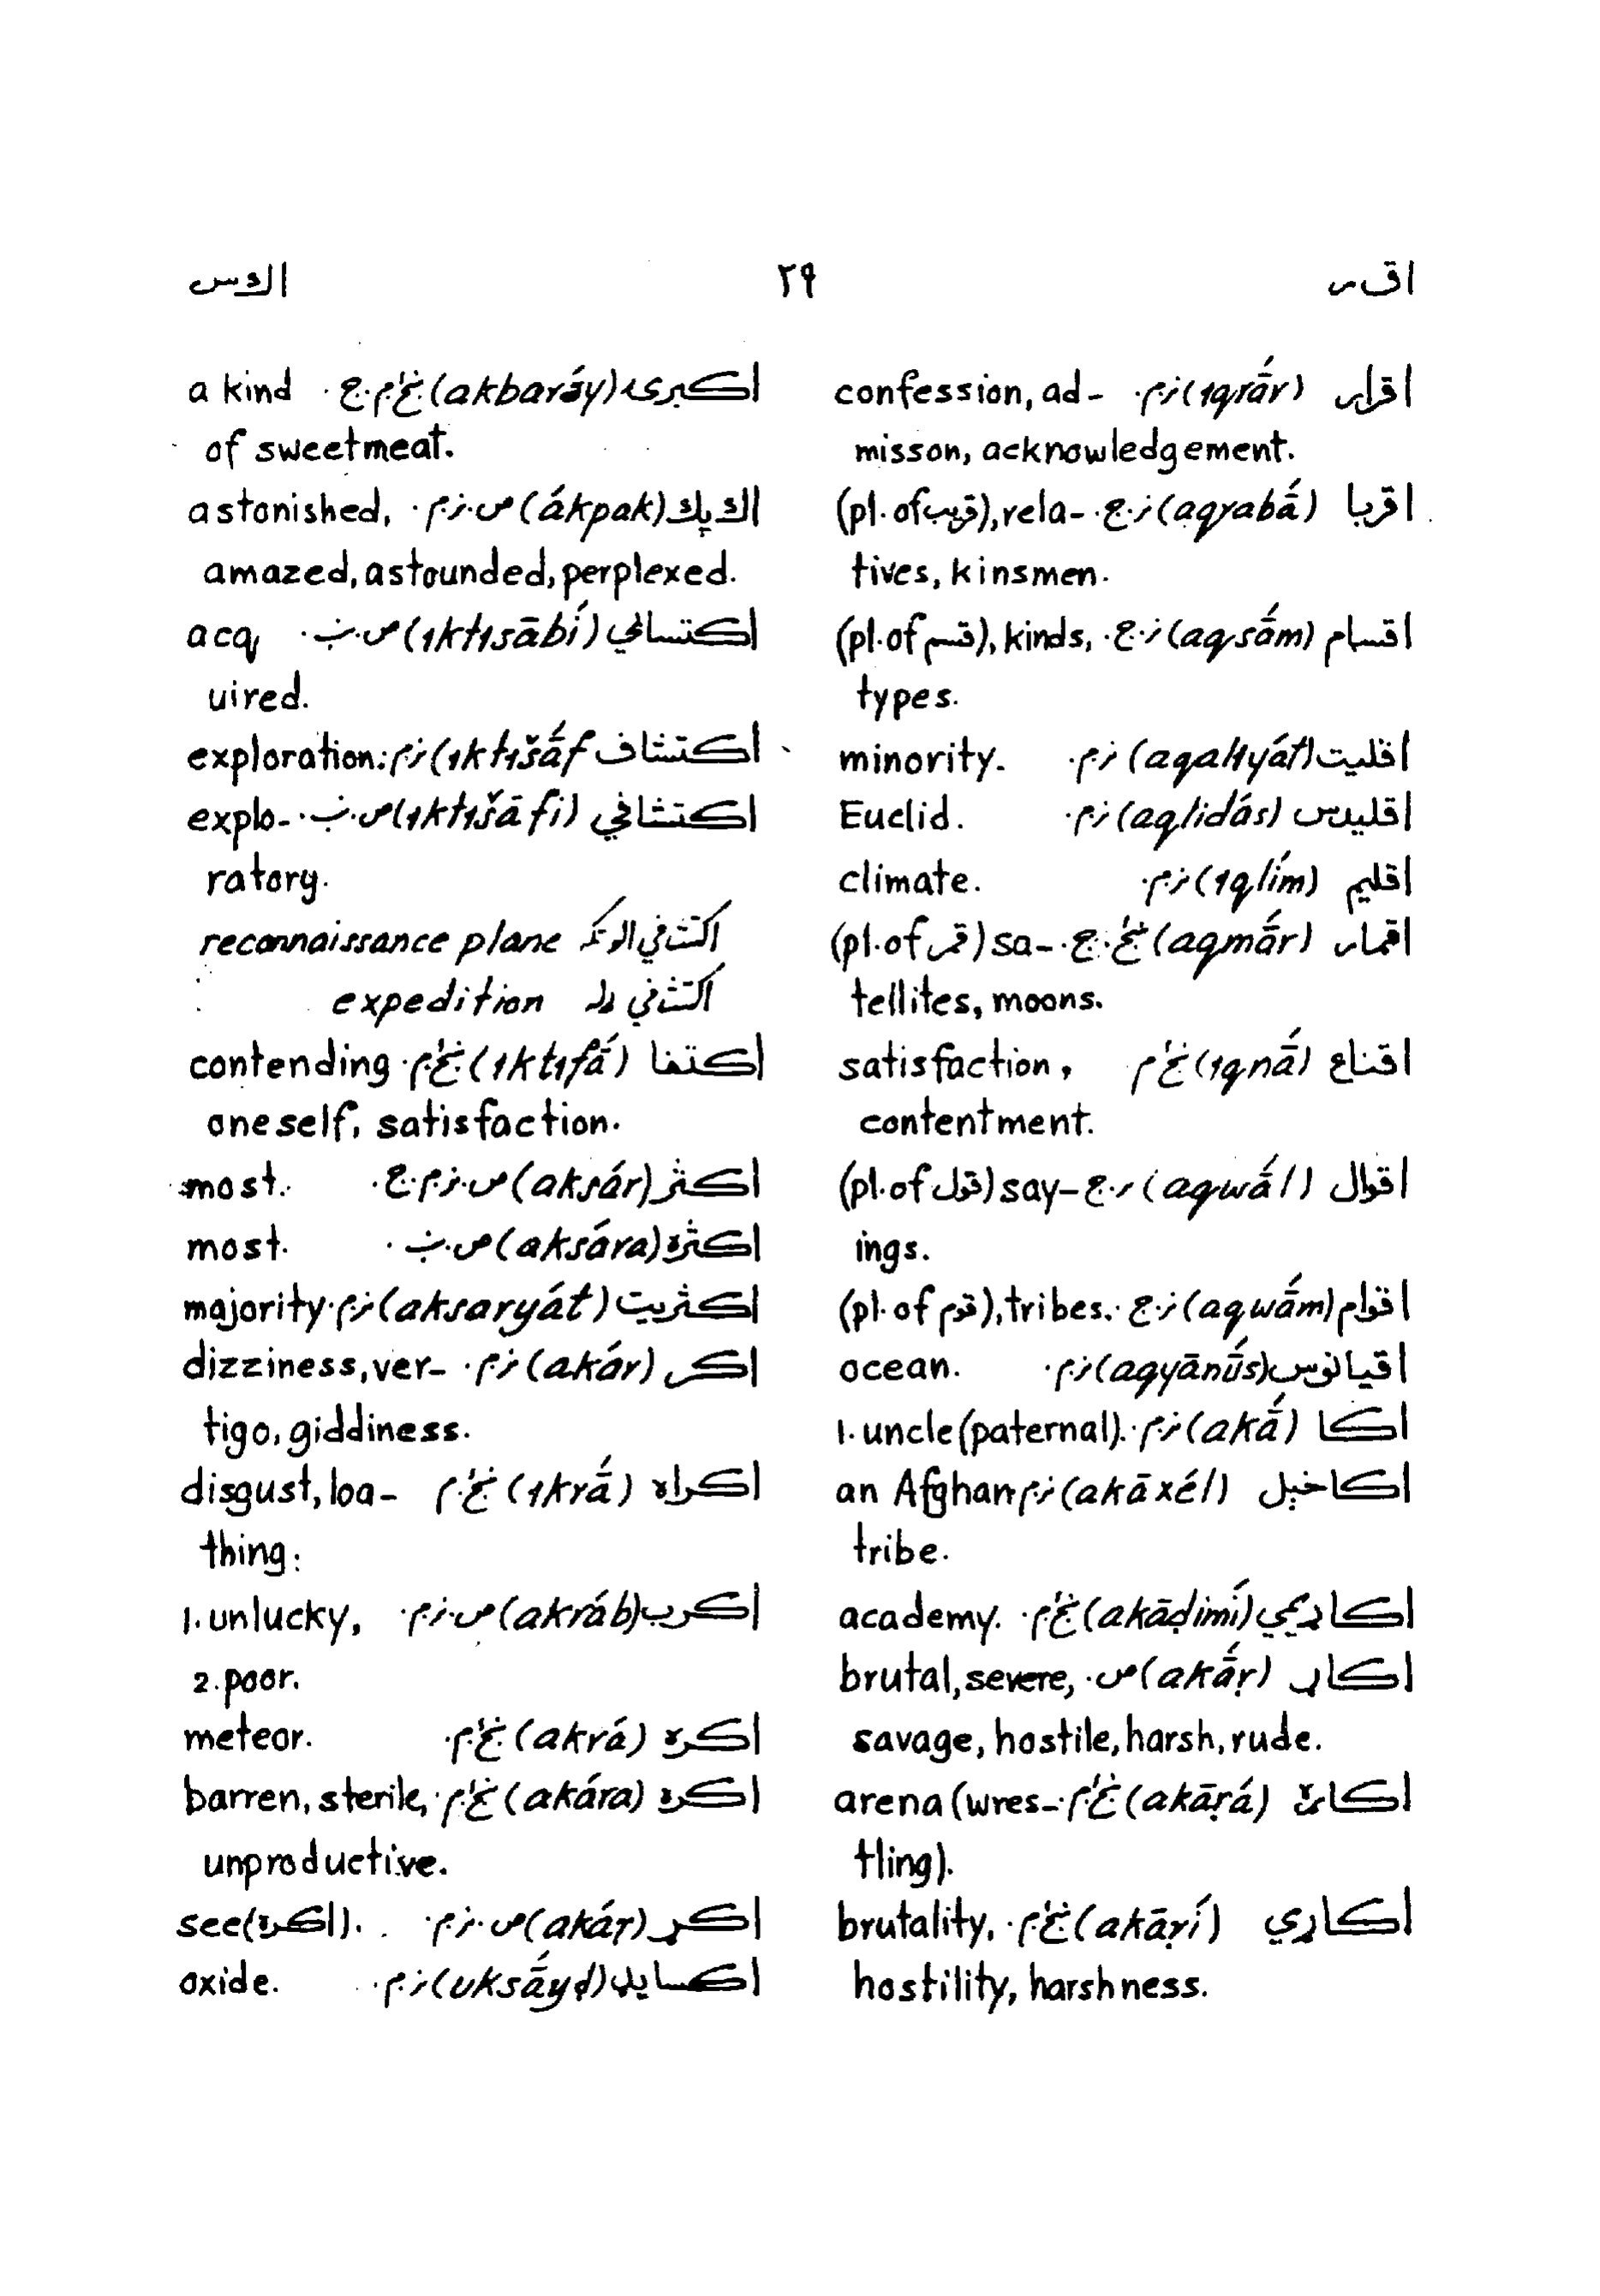 اق ر ۲۹ اک س
اقرار (ıqrā́r) ن.م. confession, ad-
misson, acknowledgement.
اقربا (aqrabā́) ن.ج. (pl. of قریب), rela-
tives, kinsmen.
اقسام (aqsā́m) ن.ج. (pl. of قسم), kinds,
types.
اقلیت (aqalıyát) ن.م. minority.
اقلیدس (aqlidás) ن.م. Euclid.
اقلیم (ıqlím) ن.م. climate.
اقمار (aqmā́r) ج. (pl. of قمر) sa-
tellites, moons.
اقناع (ıqnā́) ښځ.م satisfaction,
contentment.
اقوال (aqwā́l) ن.ج (pl. of قول) say-
ings.
اقوام (aqwā́m) ن.ج. (pl. of قوم), tribes.
اقیانوس (aqyānū́s) ن.م. ocean.
اکا (akā́) ن.م. 1. uncle (paternal).
اکاخېل (akāxél) ن.م an Afghan
tribe.
اکاډیمي (akāḍimí) ښځ.م. academy.
اکاړ (akā́ṛ) ص. brutal, severe,
savage, hostile, harsh, rude.
اکاړه (akāṛá) ښځ.م. arena (wres-
tling).
اکاړي (akāṛí) ښځ.م. brutality,
hostility, harshness.
اکبرۍ (akbarə́y) ښځ.م.ج. a kind
of sweetmeat.
اک پک (ákpak) ص.ن.م. astonished,
amazed, astounded, perplexed.
اکتسابي (ıktısābí) ص.ب. acq
uired.
اکتشاف (ıktıšā́f ن.م. exploration.
اکتشافي (ıktıšāfi) ص.ب. explo-
ratory.
اکتشافي الوتکه reconnaissance plane
اکتشافي ډله expedition
اکتفا (ıktıfā́) ښځ.م. contending
oneself, satisfaction.
اکثر (aksár) ص.ن.م.ج. most.
اکثره (aksára) ص.ب. most.
اکثریت (aksaryát) ن.م. majority
اکر (akár) ن.م. dizziness, ver-
tigo, giddiness.
اکراه (ıkrā́) ښځ.م disgust, loa-
thing.
اکرب (akráb) ص.ن.م. 1. unlucky,
2. poor.
اکره (akrá) ښځ.م. meteor.
اکره (akára) ښځ.م. barren, sterile,
unproductive.
اکړ (akáṛ) ص.ن.م. see (اکړه).
اکساید (uksā́yḍ) ن.م. oxide.